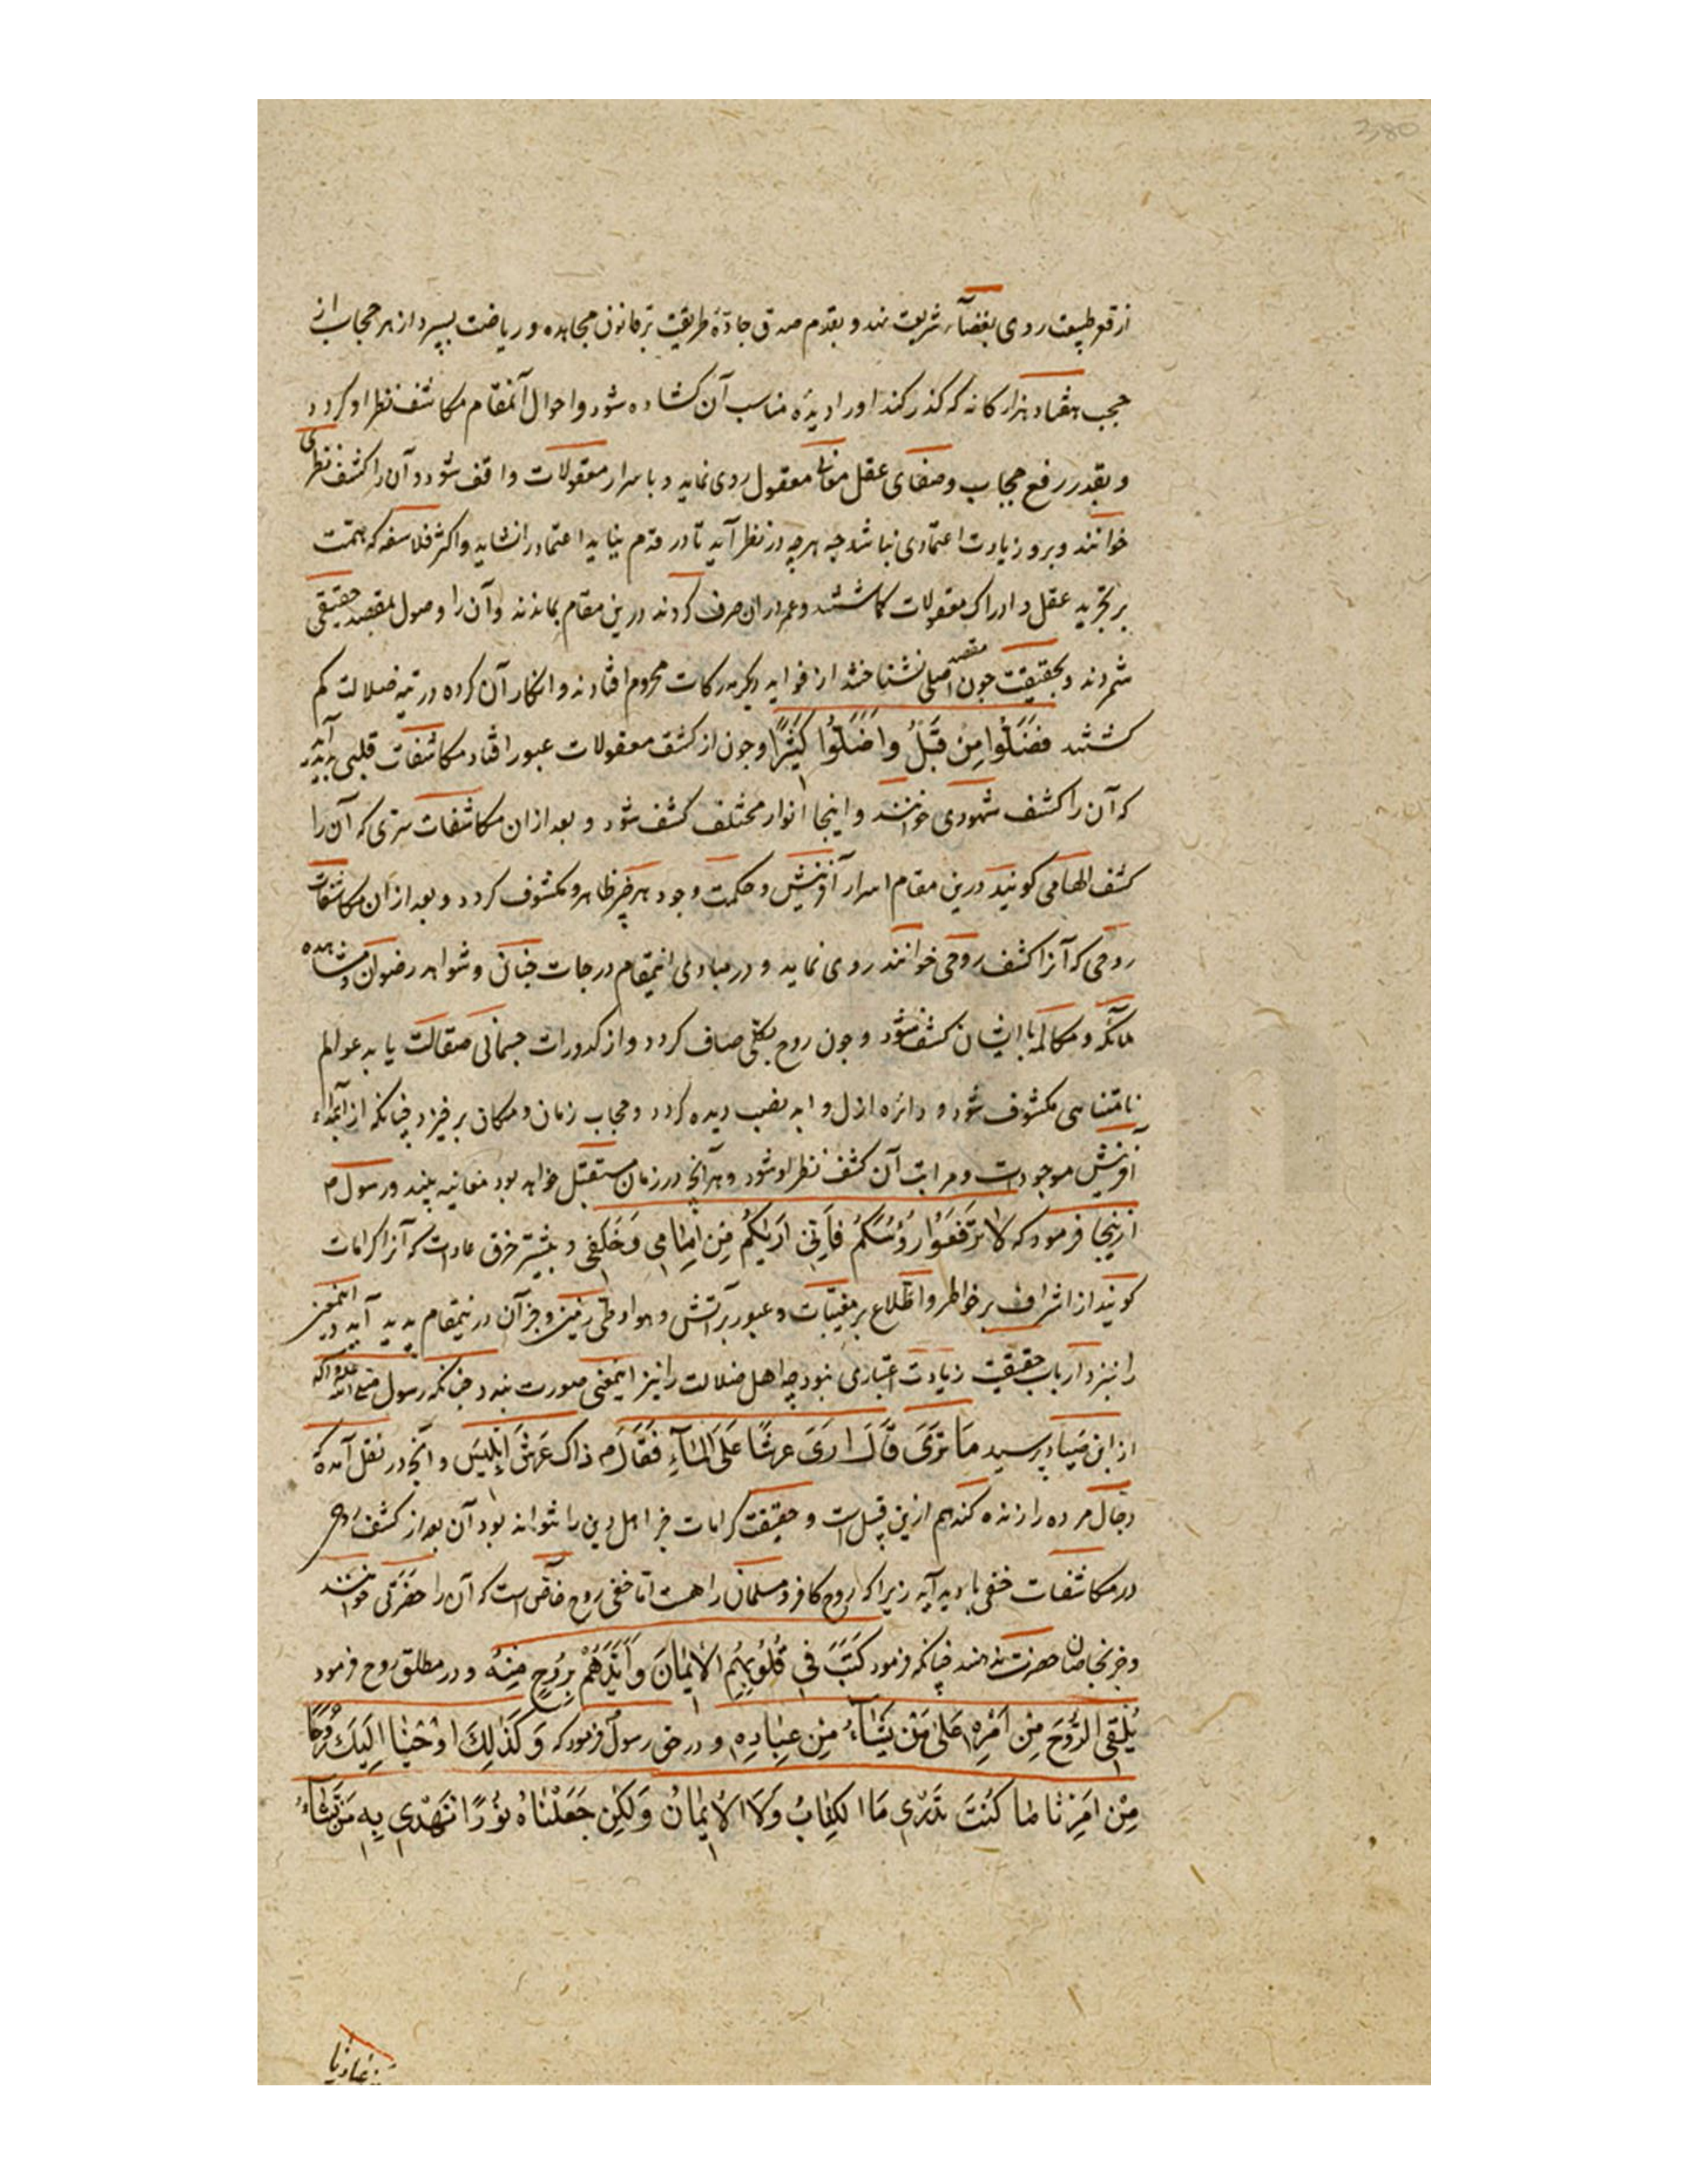 380
از قعر طبیعت روی بفضاء شریعت نهد و بقدم صدق جادّهٔ طریقت بر قانون مجاهده و ریاضت بسپرد از هر حجاب از
حجب هفتاد هزار کانه که کذر کند او را دیدهٔ مناسب آن کشاده شود و احوال آنمقام مکاشف نظر او کردد
و بقدر رفع حجاب و صفای عقل معانی معقول روی نماید و باسرار معقولات واقف شود و آن را کشف نظری
خوانند و برو زیادت اعتمادی نباشد چه هر چه در نظر آید تا در قدم نیاید اعتماد را نشاید و اکثر فلاسفه که همّت
بر تجرید عقل و ادراک معقولات کماشتند و عمر دران صرف کردند درین مقام بماندند و آن را وصول بمقصد حقیقی
شمردند و بحقیقت چون مقصد اصلی نشناختند از فواید دیکر مدرکات محروم افتادند و انکار آن کرده در تیه ضلالت کم
کشتند فَضَلّوُا مِنْ قَبْلُ وَاَضَلّوُا کَثیرًا و جون از کشف معقولات عبور افتاد مکاشفات قلبی پدید آید
که آن را کشف شهودی خوانند و اینجا انوار مختلف کشف شود و بعد ازان مکاشفات سرّی که آن را
کشف الهامی کویند درین مقام اسرار آفرینش و حکمت وجود هر چیز ظاهر و مکشوف کردد و بعد از ان مکاشفات
روحی که آنرا کشف روحی خوانند روی نماید و در مبادی اینمقام درجات جنان و شواهد رضوان و مشاهده
ملائکه و مکالمه با ایشان کشف شود و جون روح بکلّی صاف کردد و از کدورات جسمانی صقالت یابد عوالم
نامتناهی مکشوف شود و دائره ازل و ابد نصب دیده کردد و حجاب زمان و مکان برخیزد چنانکه از ابتداء
آفرینش موجودات و مراتب آن کشف نظر او شود و هر آنچه در زمان مستقبل خواهد بود معاینه بیند و رسول م
ازینجا فرمود که لا تَرْفَعوُا رُؤُسَکُمْ فَاِنّی اَرٰیکُمْ مِنْ اَمٰامی وَخَلْفی و بیشتر خرق عادات که آنرا کرامات
کویند از اشراف بر خواطر و اطّلاع بر مغیبات و عبور بر آتش و هوا و طیّ زمین و جز آن درینمقام پدید آید و اینمعنی
را نیز نزد ارباب حقیقت زیادت اعتباری نبود چه اهل ضلالت را نیز اینمعنی صورت بندد چنانکه رسول صلی الله علیه و آله
از ابن صیاد پرسید مٰا تَریٰ قٰالَ اَریٰ عرشًا عَلَی المٰآءِ فَقٰالَ م ذاک عَرشُ اِبْلیسَ و آنچه در نقل آمده که
دجّال مرده را زنده کند هم ازین قبیل است و حقیقت کرامات جز اهل دین را نتواند بود آن بعد از کشف روح
در مکاشفات خفی با دید آید زیرا که روح کافر و مسلمان را هست امّا خفی روح خاصّ است که آن را حضرتی خوانند
و جز بخاصان حضرت ندهند چنانکه فرمود کَتَبَ فی قُلوُبِهِمُ الْایمٰانَ وَاَیَّدَهُمْ بِروُحٍ مِنْهُ و در مطلق روح فرمود
یُلْقِی الرّوُحَ مِنْ اَمْرِهِ عَلیٰ مَنْ یَشٰاءُ مِنْ عِبٰادِهِ و در حق رسول فرمود که وَ کَذٰلِکَ اَوْحَیْنٰا اِلَیْکَ روُحًا
مِنْ اَمْرِنٰا مٰا کُنْتَ تَدْری مَا الْکِتٰابُ وَلَا الْایمٰانُ وَلٰکِنْ جَعَلْنٰاهُ نوُرًا نَهْدی بِهِ مَنْ نَشٰاءُ
من عبادنا